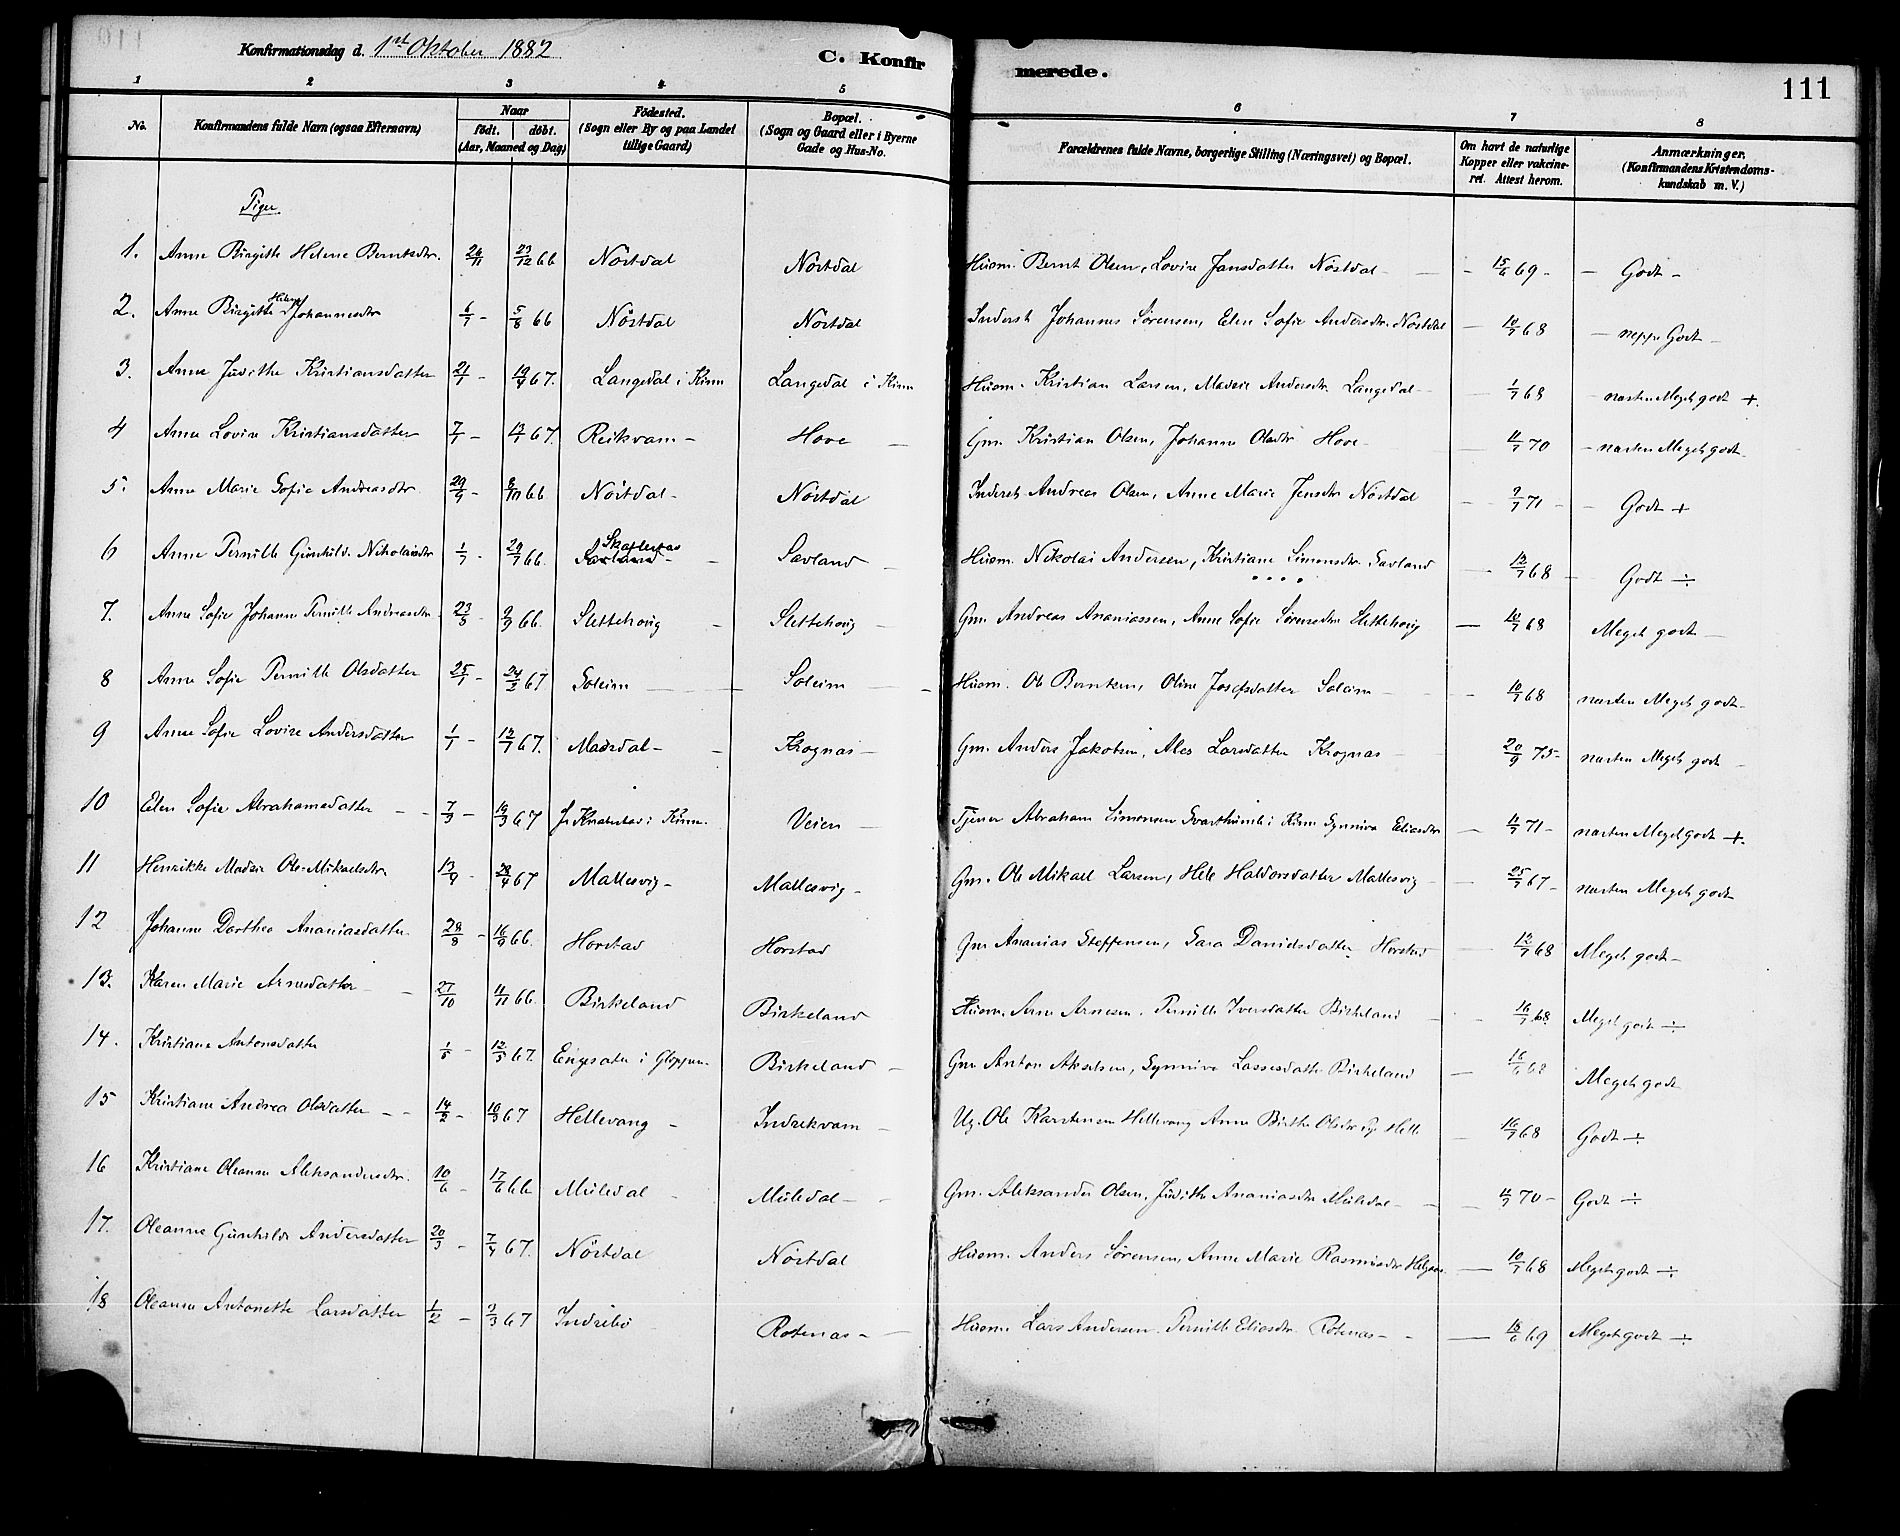 Konfirmationsdag d. 1st Oktober 1882 C. Konfirmerede. 111
1 2 3 4 5 6 7 8
No. Konfirmandens fulde Navn (ogsaa Efternavn) Naar født. døbt. (Aar, Maaned og Dag) Fødested. (Sogn eller By og paa Landet tillige Gaard) Bopæl. (Sogn og Gaard eller i Byerne Gade og Hus-No. Forældrenes fulde Navne, borgerlige Stilling (Næringsvei) og Bopæl. Om havt de naturlige Kopper eller vakcineret. Attest herom. Anmærkninger. (Konfirmandens Kristendomskundskab m. V.)
Piger
1. Anne Birgitte Helene Berntsdtr. 26/11 23/12 66 Nöstdal Nöstdal Husm. Bernt Olsen, Lovise Jansdatter Nöstdal - 15/6 69 - Godt -
2. Anne Birgitte Helene Johannesdtr 6/7 - 5/8 66 Nöstdal Nöstdal Inderst Johannes Sørensen, Elen Sofie Andersdtr. Nöstdal - 10/7 68 - neppe Godt -
3. Anne Judithe Kristiansdatter 21/1 - 19/4 67. Langedal i Kinn Langedal i Kinn Husm. Kristian Larsen, Madsie Andersdtr. Langedal - 1/7 68 - næsten Meget godt +.
4 Anne Lovise Kristiansdatter 7/1 - 13/1 67. Reikvam - Hove - Gm. Kristian Olsen, Johanne Olsdtr Hove - 4/7 70 - næsten Meget godt -
5. Anne Marie Sofie Andreasdtr. 29/9 - 8/10 66 Nöstdal - Nöstdal Inderst Andreas Olsen, Anne Marie Jensdtr Nöstdal - 9/7 71 - Godt +
6 Anne Pernille Gunhild Nikolaisdtr 1/7 - 29/7 66. Savland - Husm. Nikolai Andersen, Kristiane Simonsdtr. Savland - 12/7 68 - Godt ÷
7. Anne Sofie Johanne Pernille Andreasdtr. 23/5 - 9/9 66. Slettehovig - Slettehovig - Gm. Andreas Ananiassen, Anne Sofie Sørensdtr Slettehovig - 10/7 68 Meget godt -
8 Anne Sofie Pernille Olsdatter 25/1 - 24/2 67 Soleim - Soleim - Husm. Ole Berntsen, Oline Josefsdatter Soleim - 10/7 68 næsten Meget godt -
9 Anne Sofie Lovise Andersdatter 1/1 - 12/7 67. Madsdal - Krognæs - Gm. Anders Jakobsen, Ales Larsdatter Krognæs - 20/9 75 - næsten Meget godt -
10 Elen Sofie Abrahamsdatter - 7/3 - 19/3 67 i Kinn. Veien - Tjener Abraham Simonsen Svarthumle i Kinn Synnive Eliasdtr - 4/7 71 - næsten Meget godt +.
11 Henrikke Madsie Ole-Mikaelsdtr. 13/4 - 28/4 67 Mallesvig - Mallesvig - Gm. Ole Mikael Larsen, Hele Haldorsdatter Mallesvig - 25/7 67 - næsten Meget godt
12 Johanne Dorthea Ananiasdatter 28/8 - 16/9 66. Horstad Horstad Gm Ananias Steffensen, Sara Danielsdatter Horstad - 12/7 68 Meget godt -
13. Karen Marie Arnesdatter - 27/10 4/11 66. Birkeland Birkeland Husm. Arne Arnesen. Pernille Iversdatter Birkeland - 16/7 68. Meget godt ÷
14. Kristiane Antonsdatter 1/5 - 12/5 67. Engesæter i Gloppen. Birkeland - Gm Anton Akselsen, Synnive Lassesdatter Birkeland - 16/6 68 Meget godt
15 Kristiane Andrea Olsdatter - - 14/2 - 10/3 67 Hellevang - Indrekvam - Ug. Ole Karstensen Hellevang Anne Birthe Olsdtr Helle - 16/7 68 Godt ÷
16 Kristiane Oleanne Aleksandersdtr. 10/6 - 17/6 66 Muledal - Muledal - Gm. Aleksander Olsen, Judithe Ananiasdtr Muledal - 4/7 70 - Godt ÷
17. Oleanne Gunhilde Andersdatter 20/3 - 7/4 67. Nöstdal Nöstdal Husm. Anders Sørensen, Anne Marie Rasmusdtr - 10/7 68 Meget godt ÷
18 Oleanne Antonette Larsdatter 1/12 - 3/3 67 Indrebö Rotenæs - Husm. Lars Andersen. Pernille Eliasdtr. Rotenæs - 18/6 69 Meget godt ÷